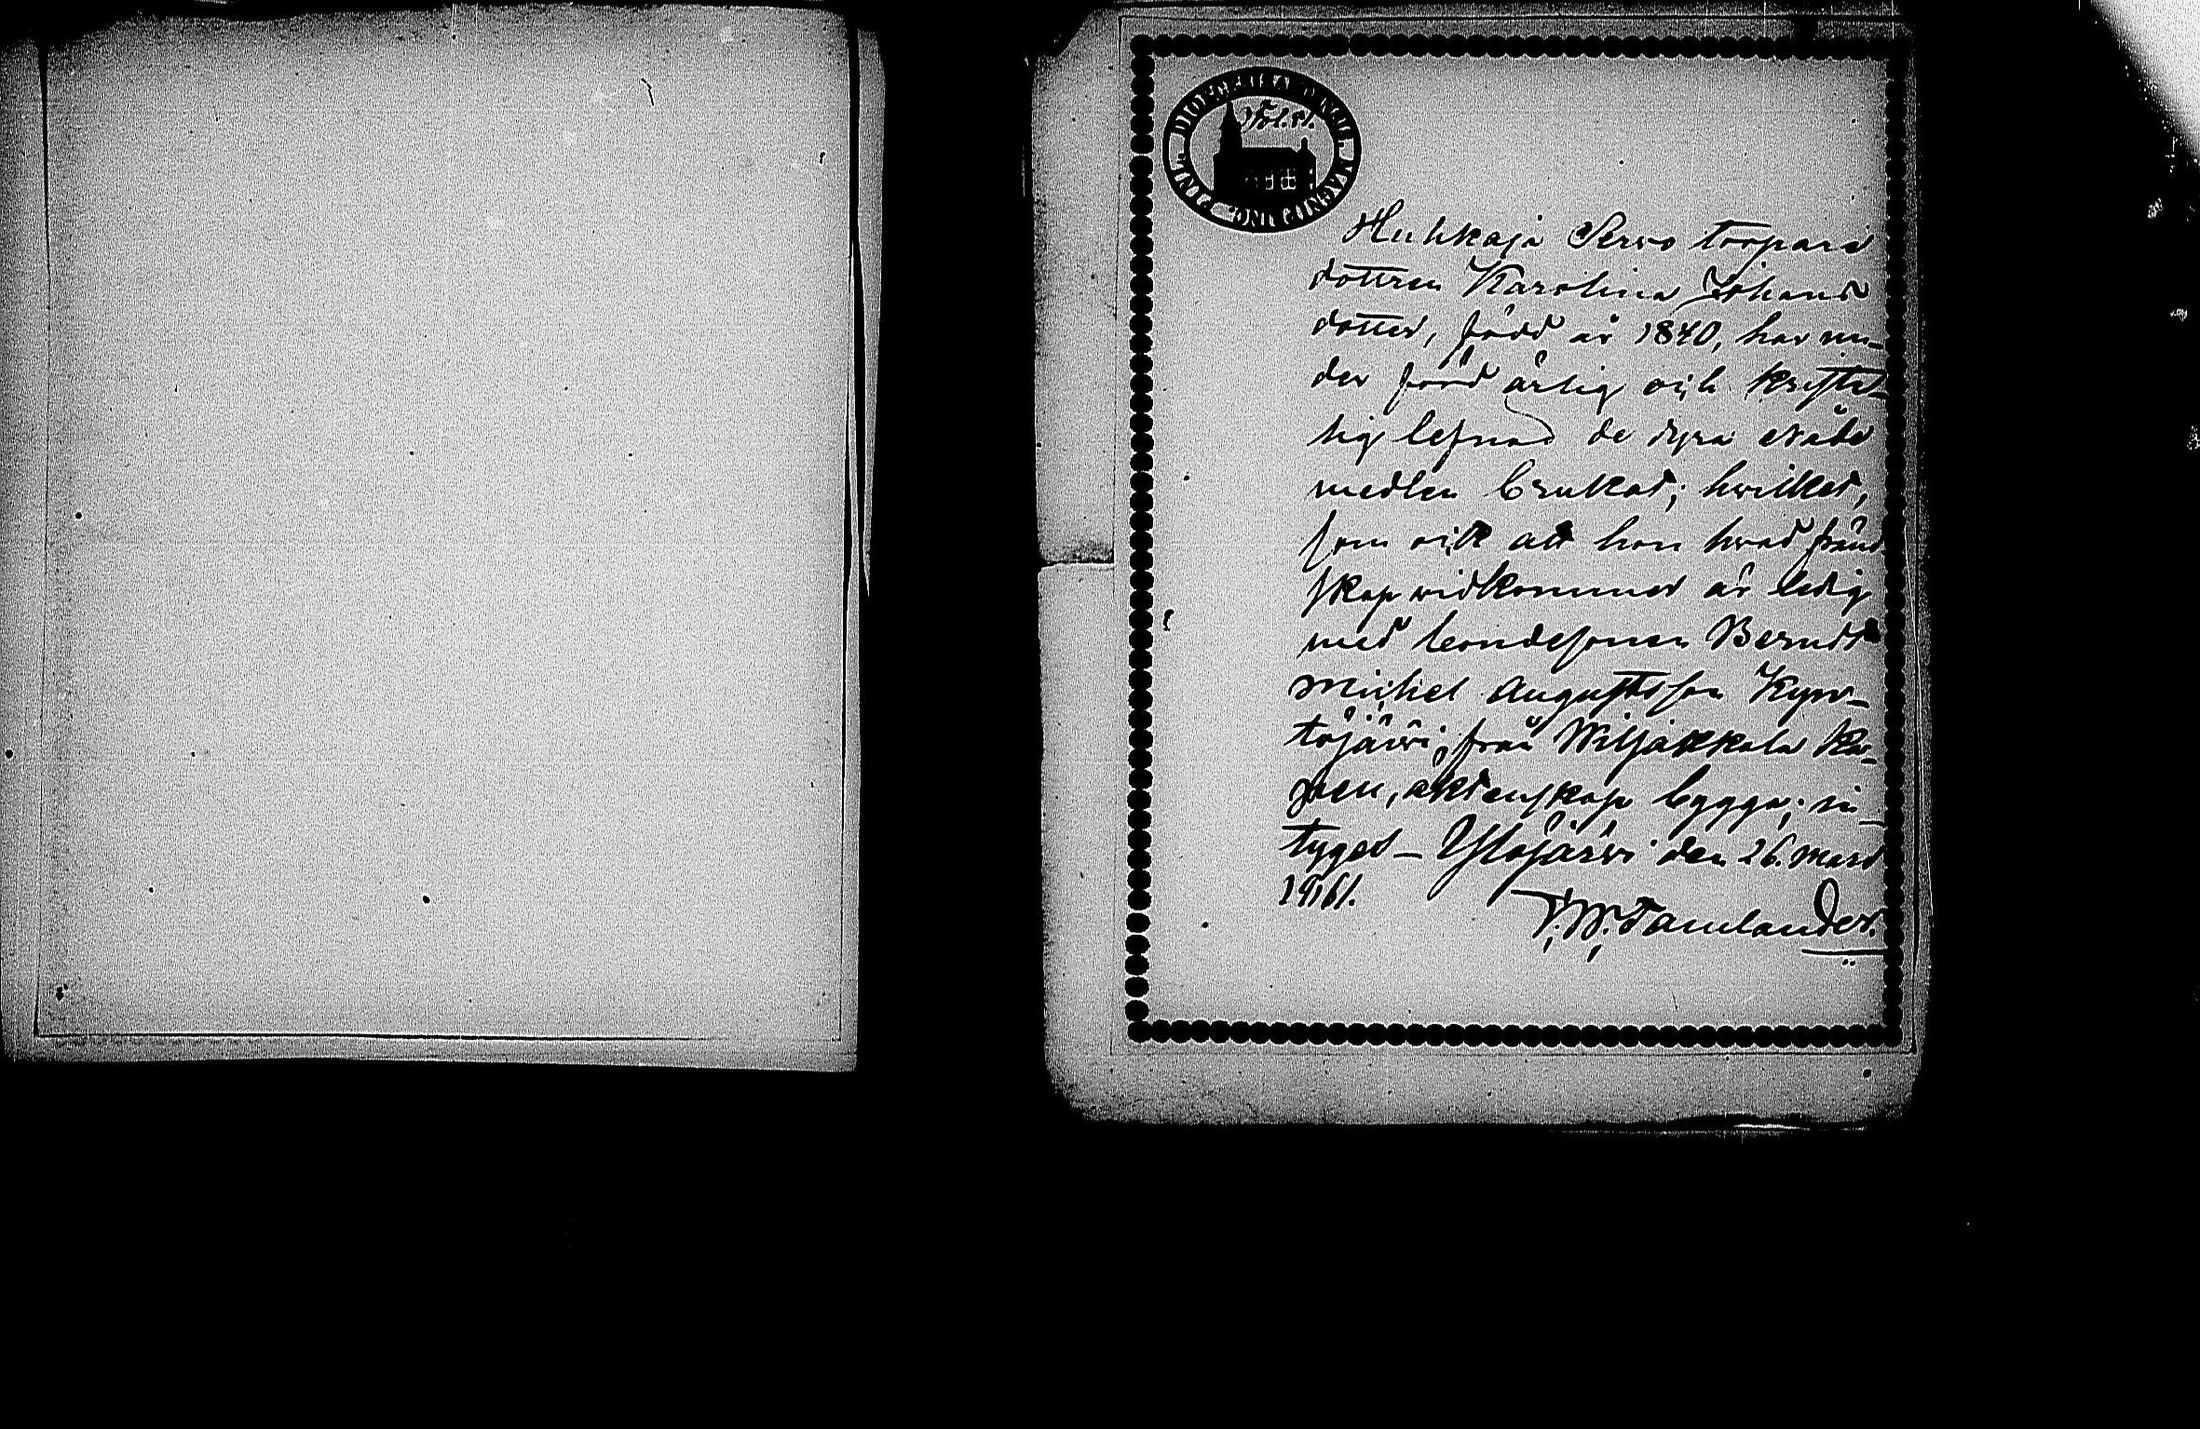 Fol. 81.
Huhkaja Servo torpare
dottren Karolina Johans
dotter, född år 1840, har un-
der förd ärlig och kriste-
lig lefnad de dyra nåde
medlen brukat; hvilket,
som ock att hon hvad fränd
skap vidkommer är ledig
med bondesonen Berndt
Michel Augustsson Kyrö-
föjärvi, från Wiljakkala Ka-
pell, äktenskap bygga; in-
tygas – Ylöjärvi den 26. Mars
1861.
F. W. Tamlander.